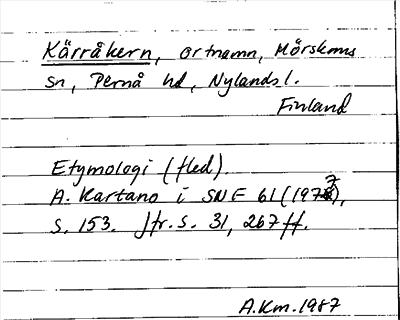 Kärråkern, ortnamn, Mörskoms
sn, Pernå hd, Nylands l.
Finland
Etymologi (fled).
A. Kartano i SNF 61 (1973),
s. 153. Jfr. s. 31, 267 ff.
A.Km. 1987